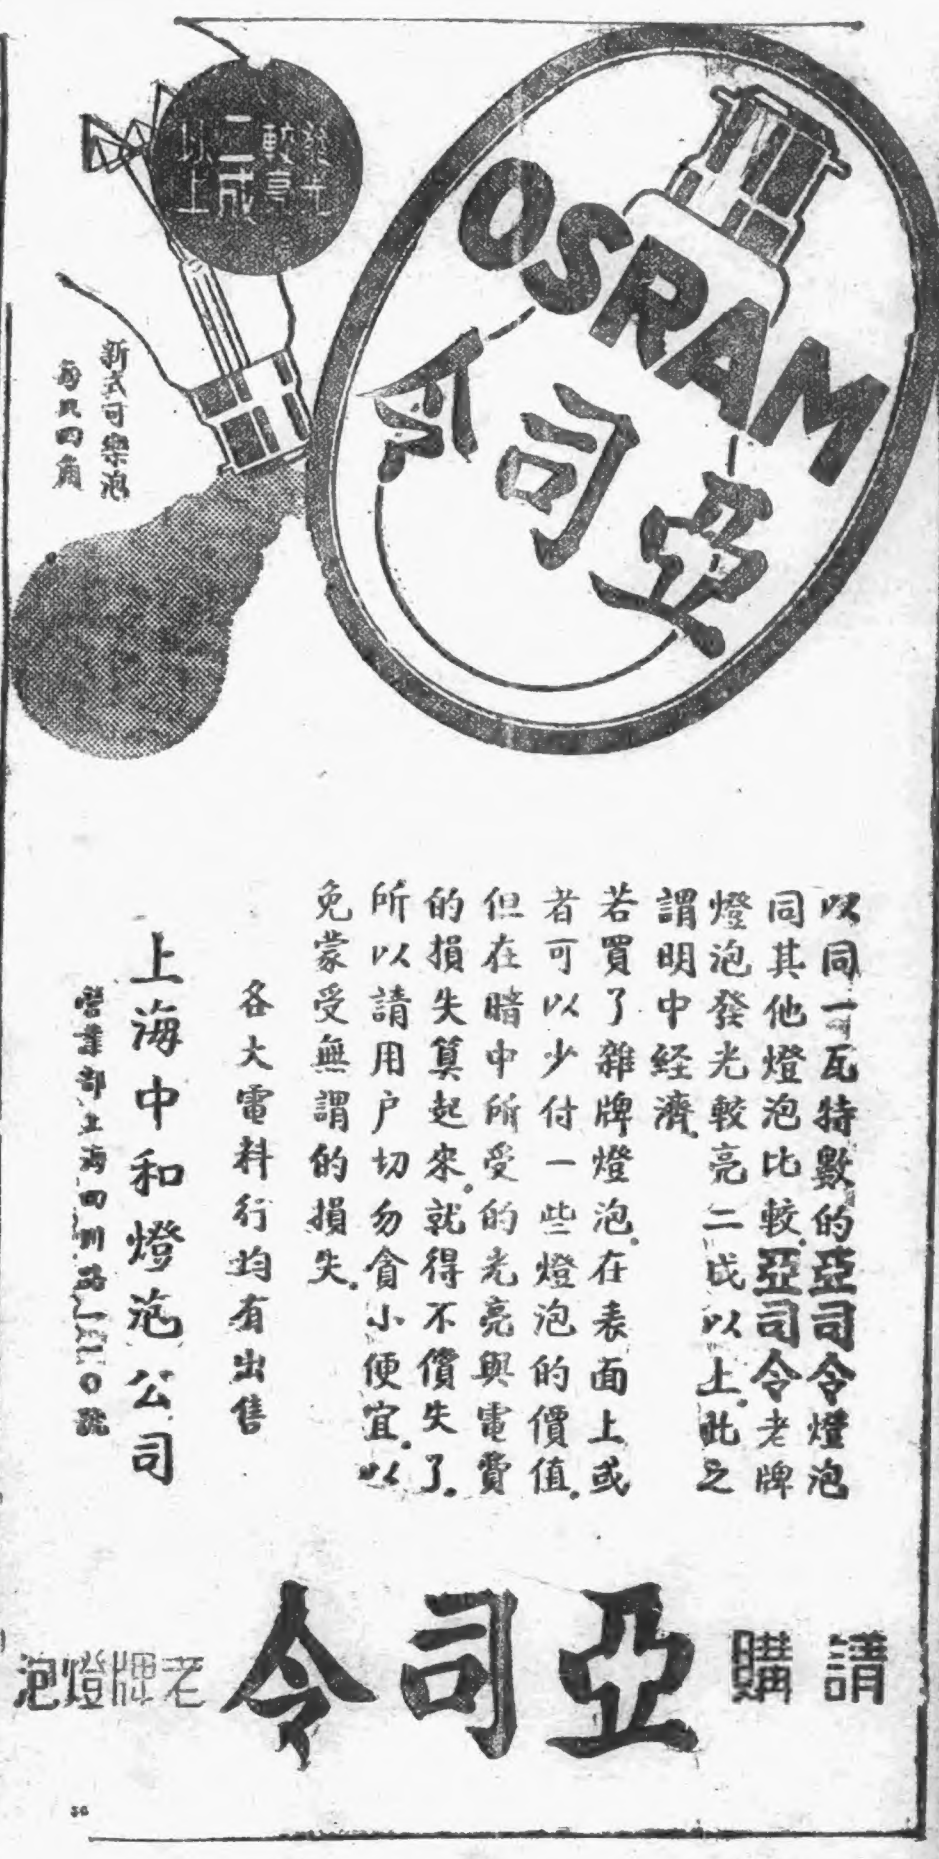 發光
較亮
二成
以上
OSRAM
亞司令
新式可樂泡
每只四角
以同一瓦特數的亞司令燈泡
同其他燈泡比較.亞司令老牌
燈泡發光較亮二成以上.此之
謂明中経濟.
若買了雜牌燈泡.在表面上或
者可以少付一些燈泡的價值.
但在暗中所受的光亮與電費
的損失算起來.就得不償失了.
所以請用户切勿貪小便宜.以
免蒙受無謂的損失.
各大電料行均有出售
上海中和燈泡公司
營業部上海四川路
號
請購
亞司令
老牌燈泡